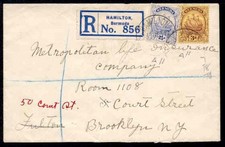 HAMILTON,
Bermuda
R No. 856
BERMUDA BERMUDA
Metropolitan life Insurance
Company
Room 1108
50 Court St. Court Street
Fulton Brooklyn NY